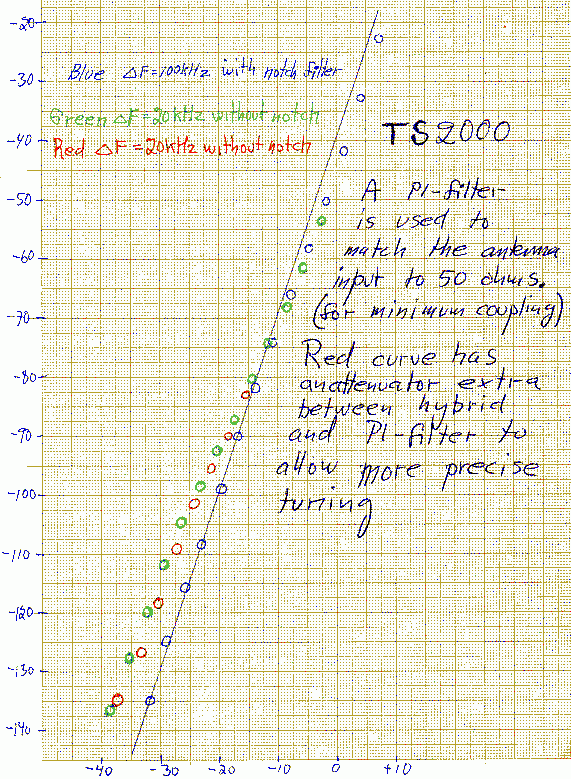 -20
-30
-40
-50
-60
-70
-80
-90
-100
-110
-120
-130
-140
Blue ΔF=100kHz with notch filter
Green ΔF=20kHz without notch
Red ΔF=20kHz without notch
TS2000
A PI-filter
is used to
match the antenna
input to 50 ohms.
(for minimum coupling)
Red curve has
an attenuator extra
between hybrid
and PI-filter to
allow more precise
tuning
-40 -30 -20 -10 0 +10